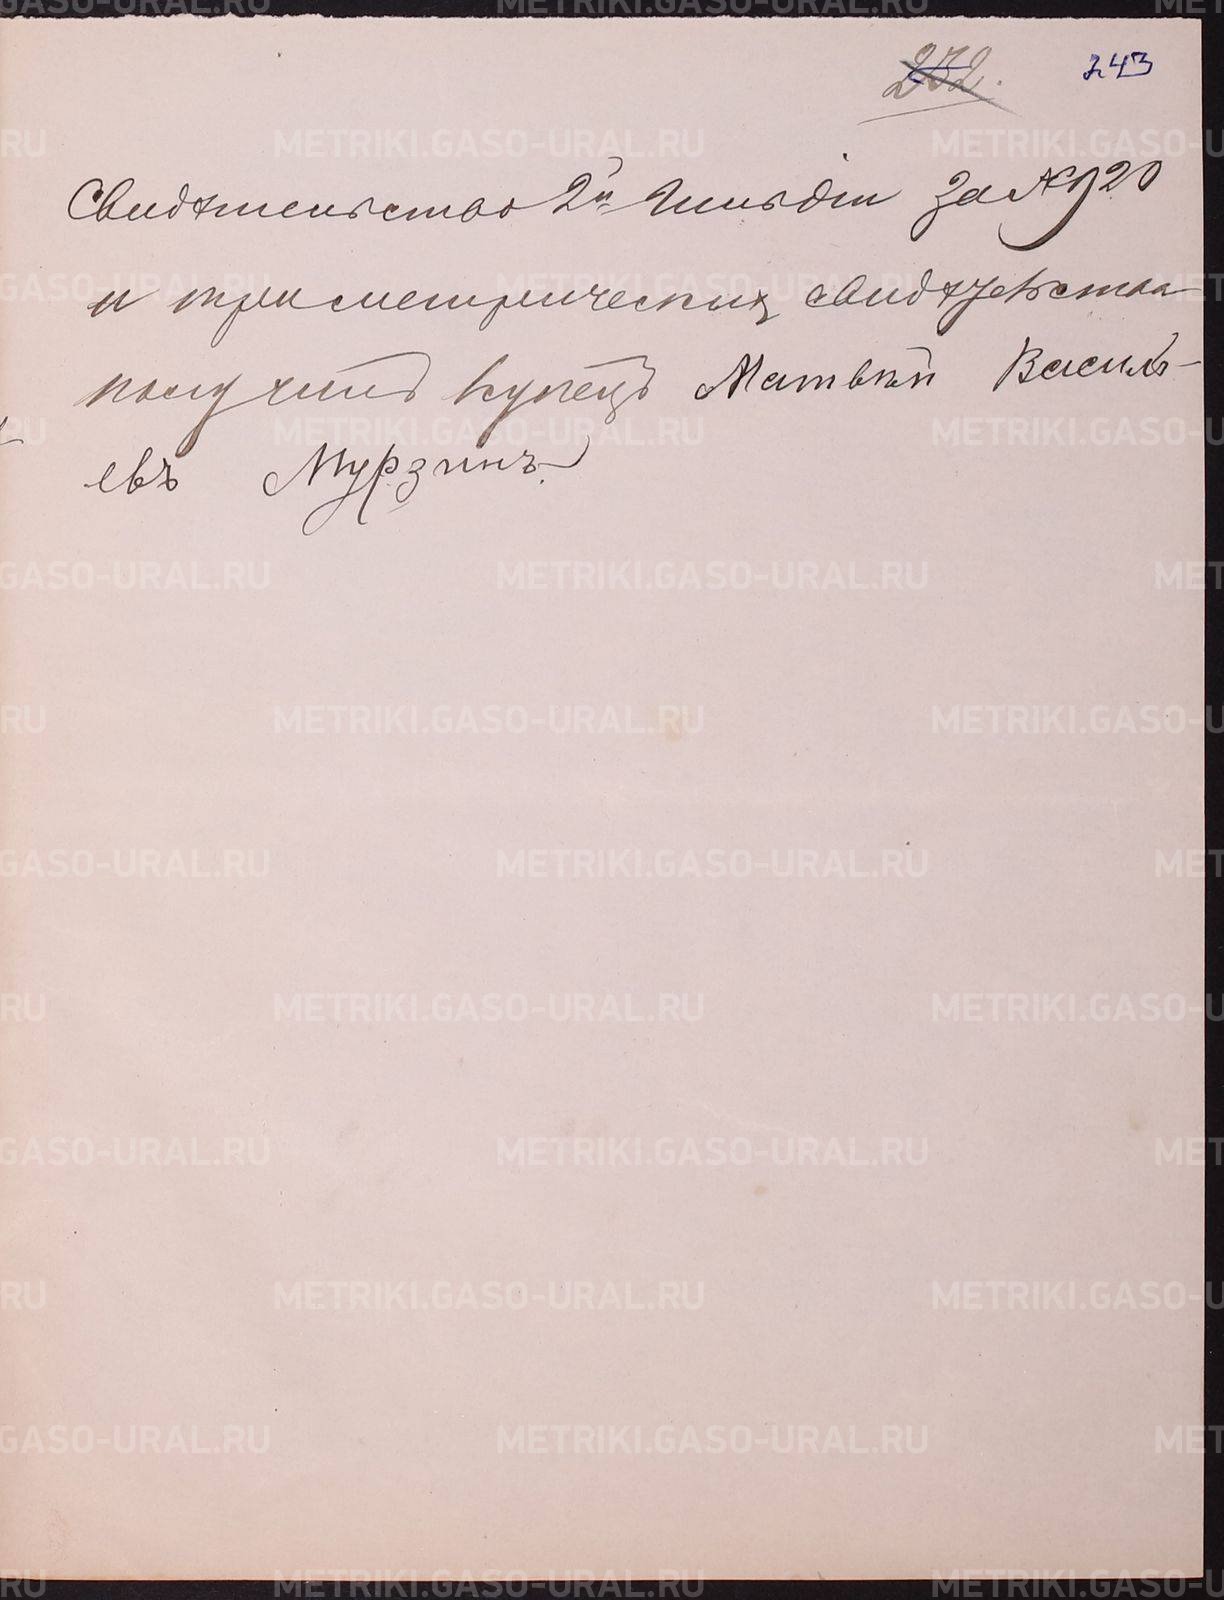 232. 243
Свидѣтельство 2й Гильдіи за № 920
и три метрическихъ свидѣтельства
получилъ купецъ Матвѣй Василь-
евъ Мурзинъ.
METRIKI.GASO-URAL.RU